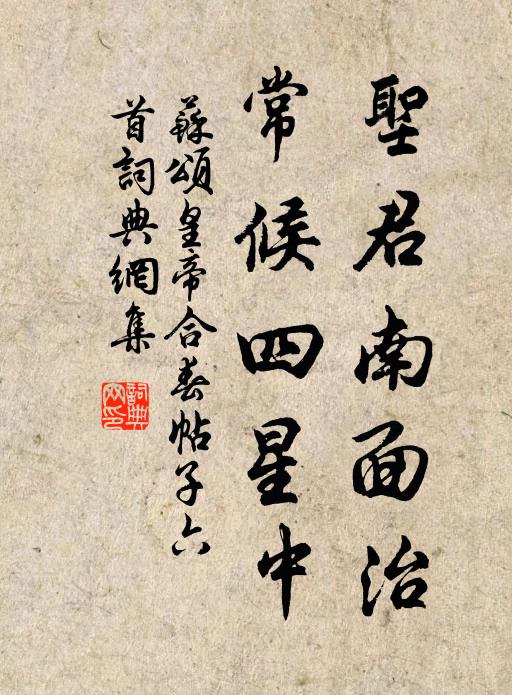 聖君南面治
常候四星中
蘇頌皇帝合春帖子六
首詞典網集
詞典網印